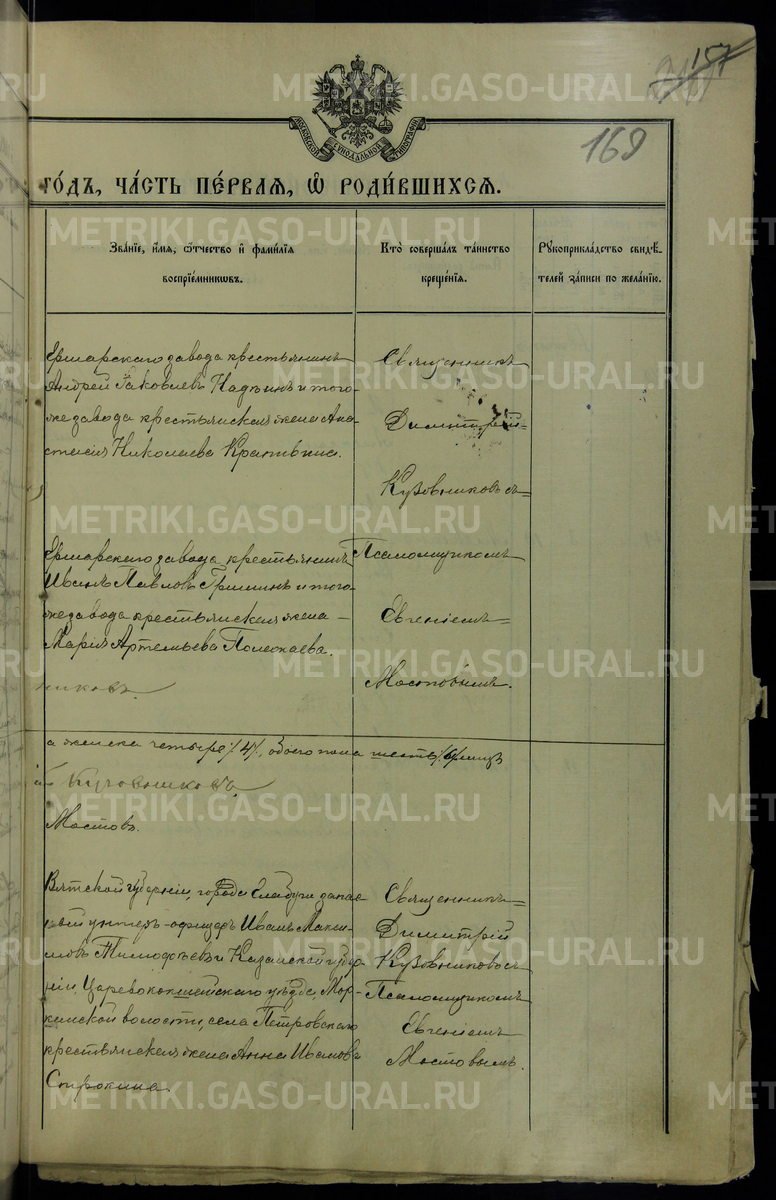 157
169
МОСКОВСКОЙ СѴНОДАЛЬНОЙ ТИПОГРАФІИ
го́дъ, ча́сть пе́рваѧ, ѡ҆ роди́вшихсѧ.
Зва́нїе, и҆́мѧ, ѻ҆́тчество и҆ фами́лїѧ
воспрїе́мниковъ.
Кто̀ соверша́лъ та́инство
креще́нїѧ.
Рꙋкоприкла́дство свидѣ́-
телей за́писи по жела́нїю.
Ершарскаго завода крестьянинъ
Андрей Іаковлевъ и того-
же завода крестьянская жена Ана-
стасія Николаева
Священникъ
Димитрій
Кузовниковъ съ
Псаломщикомъ
Евгеніемъ
Мостовымъ.
завода крестьянинъ
Иванъ Павловъ и того-
же завода крестьянская жена
Марія Артемьева Полежаева.
никовъ.
а женска четыре /4/, обоего пола шесть /6/ лицъ
Кузовниковъ
Мостовъ.
Вятской губерніи, города Елабуги запас-
ный унтеръ-офицеръ Иванъ Макси-
мовъ Тимофѣевъ и Казанской губер-
ніи Царевококшайскаго уѣзда, Мор-
кинской волости, села Петровскаго
крестьянская жена Анна Иванова
Сорокина.
Священникъ
Димитрій
Кузовниковъ съ
Псаломщикомъ
Евгеніемъ
Мостовымъ.
METRIKI.GASO-URAL.RU